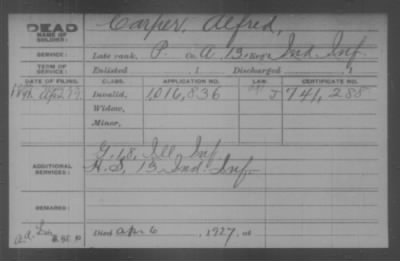 DEAD
NAME OF SOLDIER: Carper, Alfred,
SERVICE: Late rank, P. Co. A, 13, Reg't Ind. Inf.
TERM OF SERVICE: Enlisted , 1 Discharged , 1
DATE OF FILING. CLASS. APPLICATION NO. LAW. CERTIFICATE NO.
Invalid, 1,016,836 J 741,288
Widow,
Minor,
ADDITIONAL SERVICES: G. 18, Ill Inf
H. S. 13 Ind. Inf.
REMARKS:
Died Apr 6, 1927, at